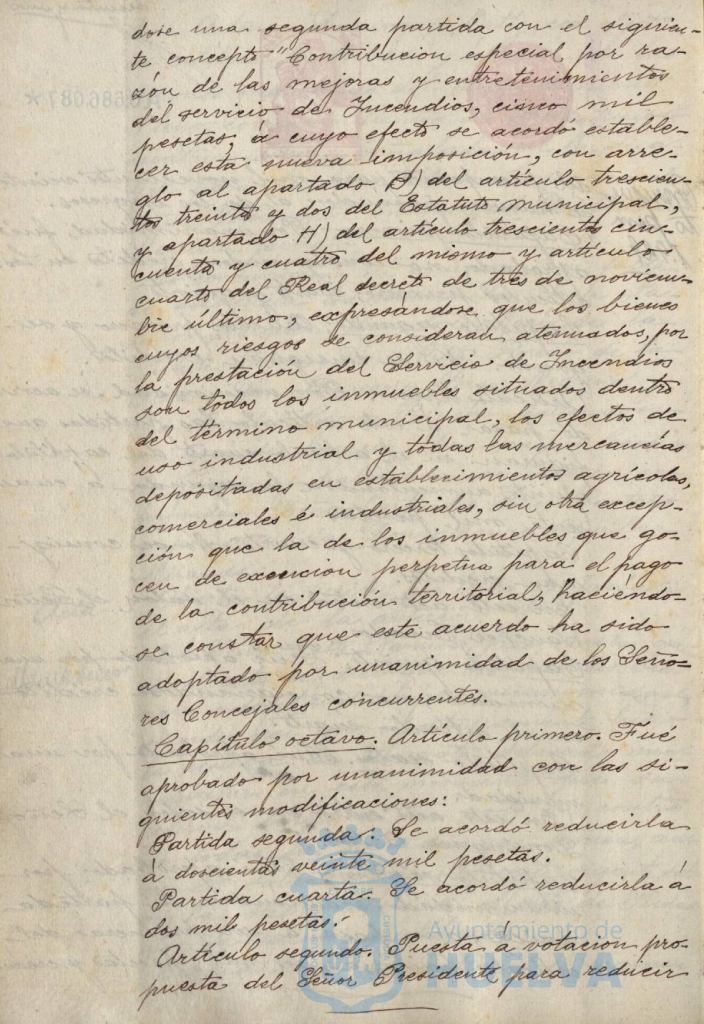 dose una segunda partida con el siguien-
te concepto "Contribucion especial por ra-
zón de las mejoras y entretenimientos
del servicio de Incendios, cinco mil
pesetas, á cuyo efecto se acordó estable-
cer esta nueva imposición, con arre-
glo al apartado ) del artículo trescien-
tos treinta y dos del Estatuto municipal,
y apartado H) del artículo trescientos cin-
cuenta y cuatro del mismo y artículo
cuarto del Real decreto de tres de noviem-
bre último, expresándose que los bienes
cuyos riesgos se consideran atenuados, por
la prestación del Servicio de Incendios
son todos los inmuebles situados dentro
del término municipal, los efectos de
uso industrial y todas las mercancías
depositadas en establecimientos agrícolas,
comerciales é industriales, sin otra excep-
ción que la de los inmuebles que go-
cen de exención perpetua para el pago
de la contribución territorial, haciéndo-
se constar que este acuerdo ha sido
adoptado por unanimidad de los Seño-
res Concejales concurrentes.
Capítulo octavo. Artículo primero. Fué
aprobado por unanimidad con las si-
guientes modificaciones:
Partida segunda. Se acordó reducirla
á doscientas veinte mil pesetas.
Partida cuarta. Se acordó reducirla á
dos mil pesetas.
Artículo segundo. Puesta á votacion pro-
puesta del Señor Presidente para reducir
Ayuntamiento de
HUELVA